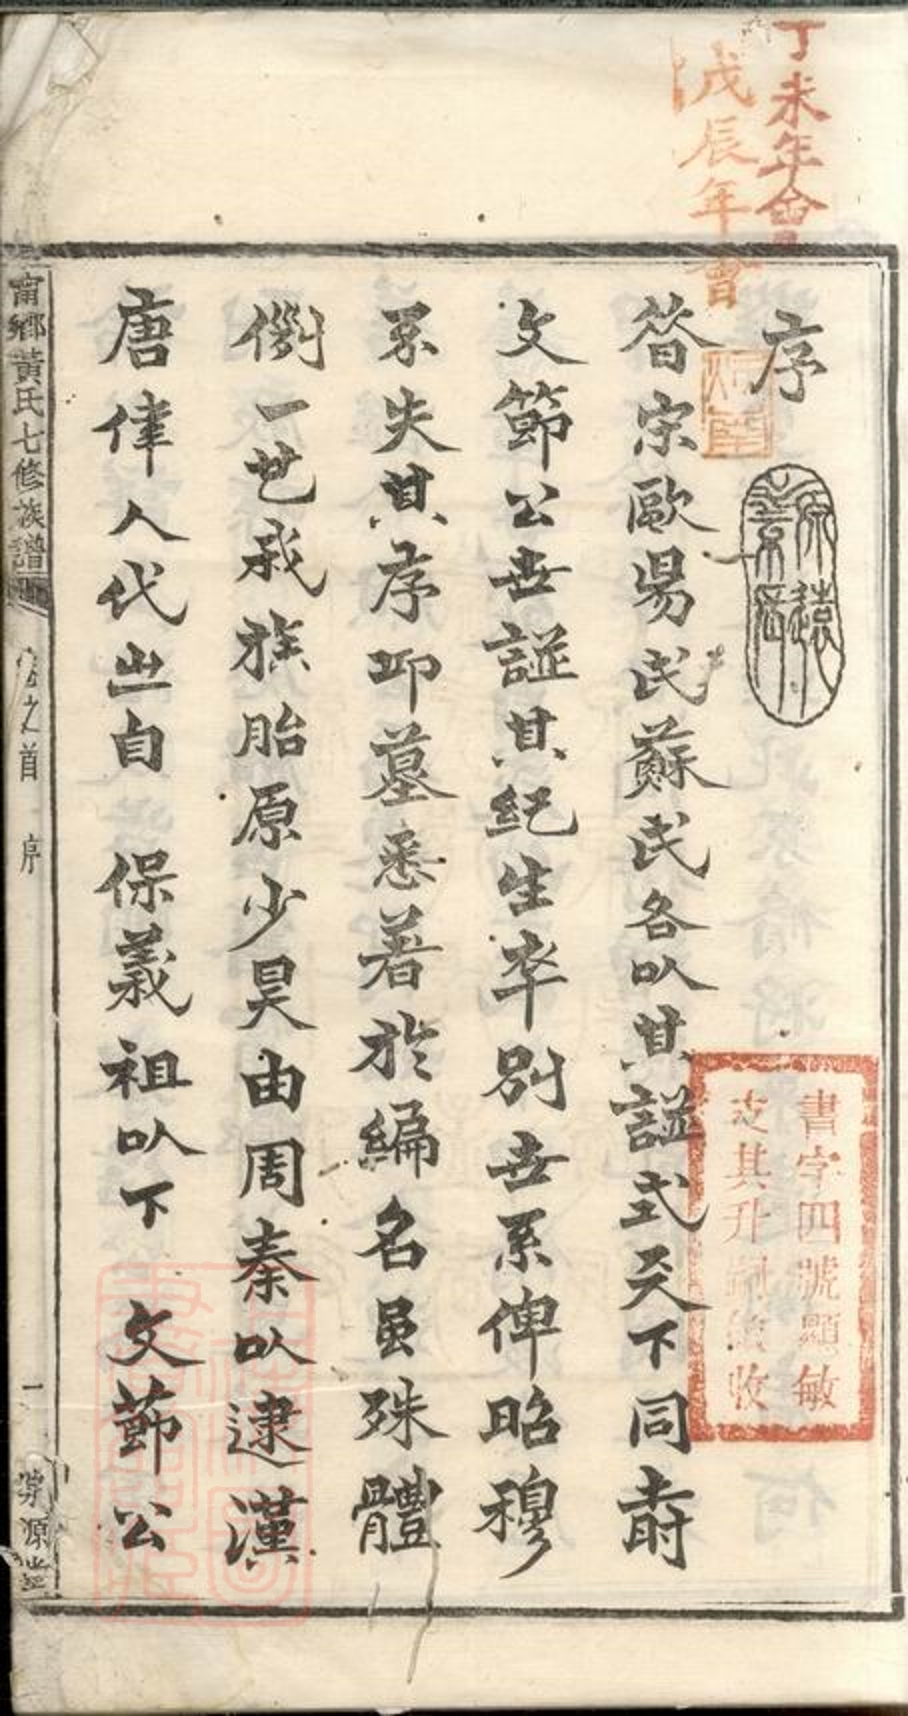 丁未年會
戊辰年會
序
源遠
昝宗歐昜氏蘇氏各以其諡式天下同旹
文節公世諡其紀生卒别世系俾昭穆
系失其序卭墓悉著於編名虽殊體
例一世我族胎原少昊由周秦以逮漢
唐偉人代出自 保義祖以下 文莭公
書字四號顯敏
支其升收
甯鄉黄氏七修族譜
卷之首 序
一
源堂